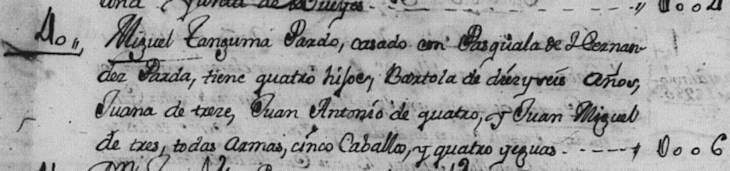 una y Junta de Bueyes. - - - - - - „ 0 0 0 4
40„ Miguel Tanguma Pardo, casado con Pasquala de Hernan-
dez Parda, tiene quatro hijos, Bartola de diez y seis años,
Juana de treze, Juan Antonio de quatro, y Juan Miguel
de tres, todas armas, cinco Caballos, y quatro yeguas - - - - - 0 0 0 6